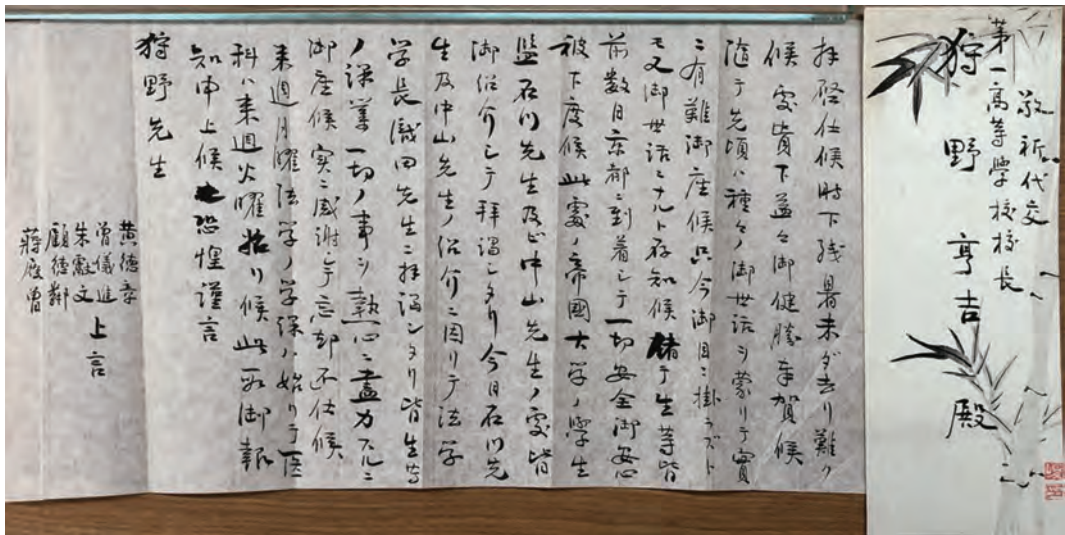 敬祈代交
第一高等学校校長
狩野亨吉殿
拝啓仕候時下残暑未ダ去リ難ク
候處貴下益々御健勝奉賀候
随テ先頃ハ種々ノ御世話ヲ蒙リテ實
ニ有難御座候只今御目ニ掛ラズト
モ又御世話ニナルト存知候偖テ生等皆
前数日京都ニ到着シテ一切安全御安心
被下度候此處ノ帝國大学ノ學生
監石川先生及ビ中山先生ノ處皆
御紹介シテ拝謁シタリ今日石川先
生及中山先生ノ紹介ニ因リテ法学
学長織田先生ニ拝謁シタリ皆生等
ノ課業一切ノ事ヲ熱心ニ盡力スルニ
御座候実ニ感謝シテ忘却不仕候
来週月曜法学ノ学課ハ始リテ医
科ハ来週火曜始リ候此段御報
知申上候恐惶謹言
狩野先生
黄徳章
曽儀進
朱獻文
顧徳鄰
蒋履曽
上言